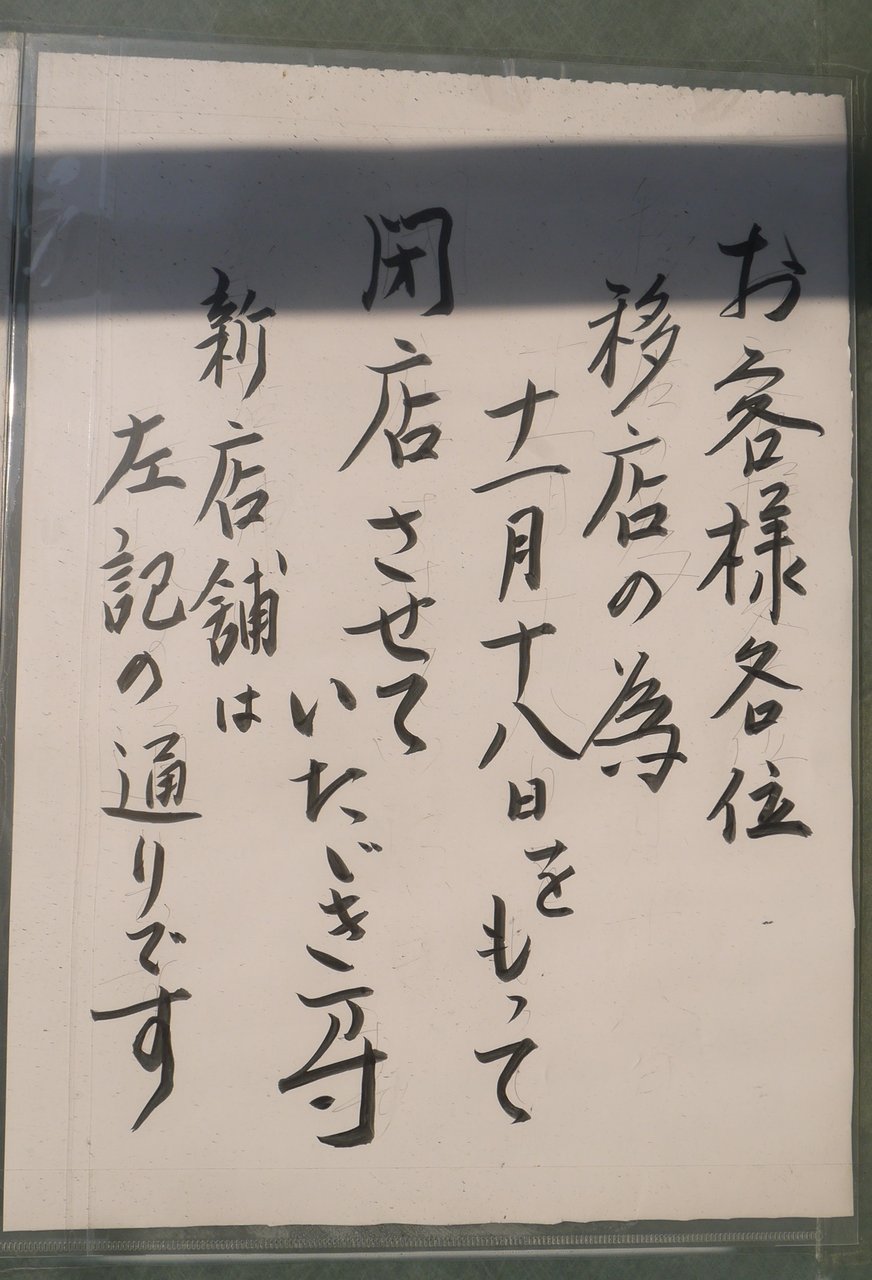 お客様各位
移店の為
十一月十八日をもって
閉店させて
いただきます
新店舗は
左記の通りです